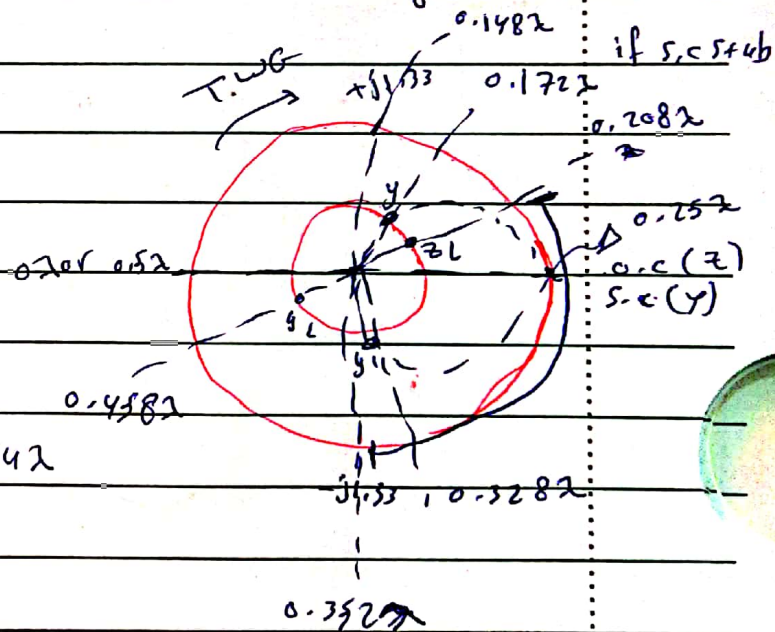 0.148λ
if s.c stub
T.WG
+j1.33
0.172λ
0.208λ
y
0.25λ
zL
0λ or 0.5λ
o.c (z)
s.c (y)
yL
y\\
0.458λ
4λ
-j1.33, 0.328λ
0.352λ